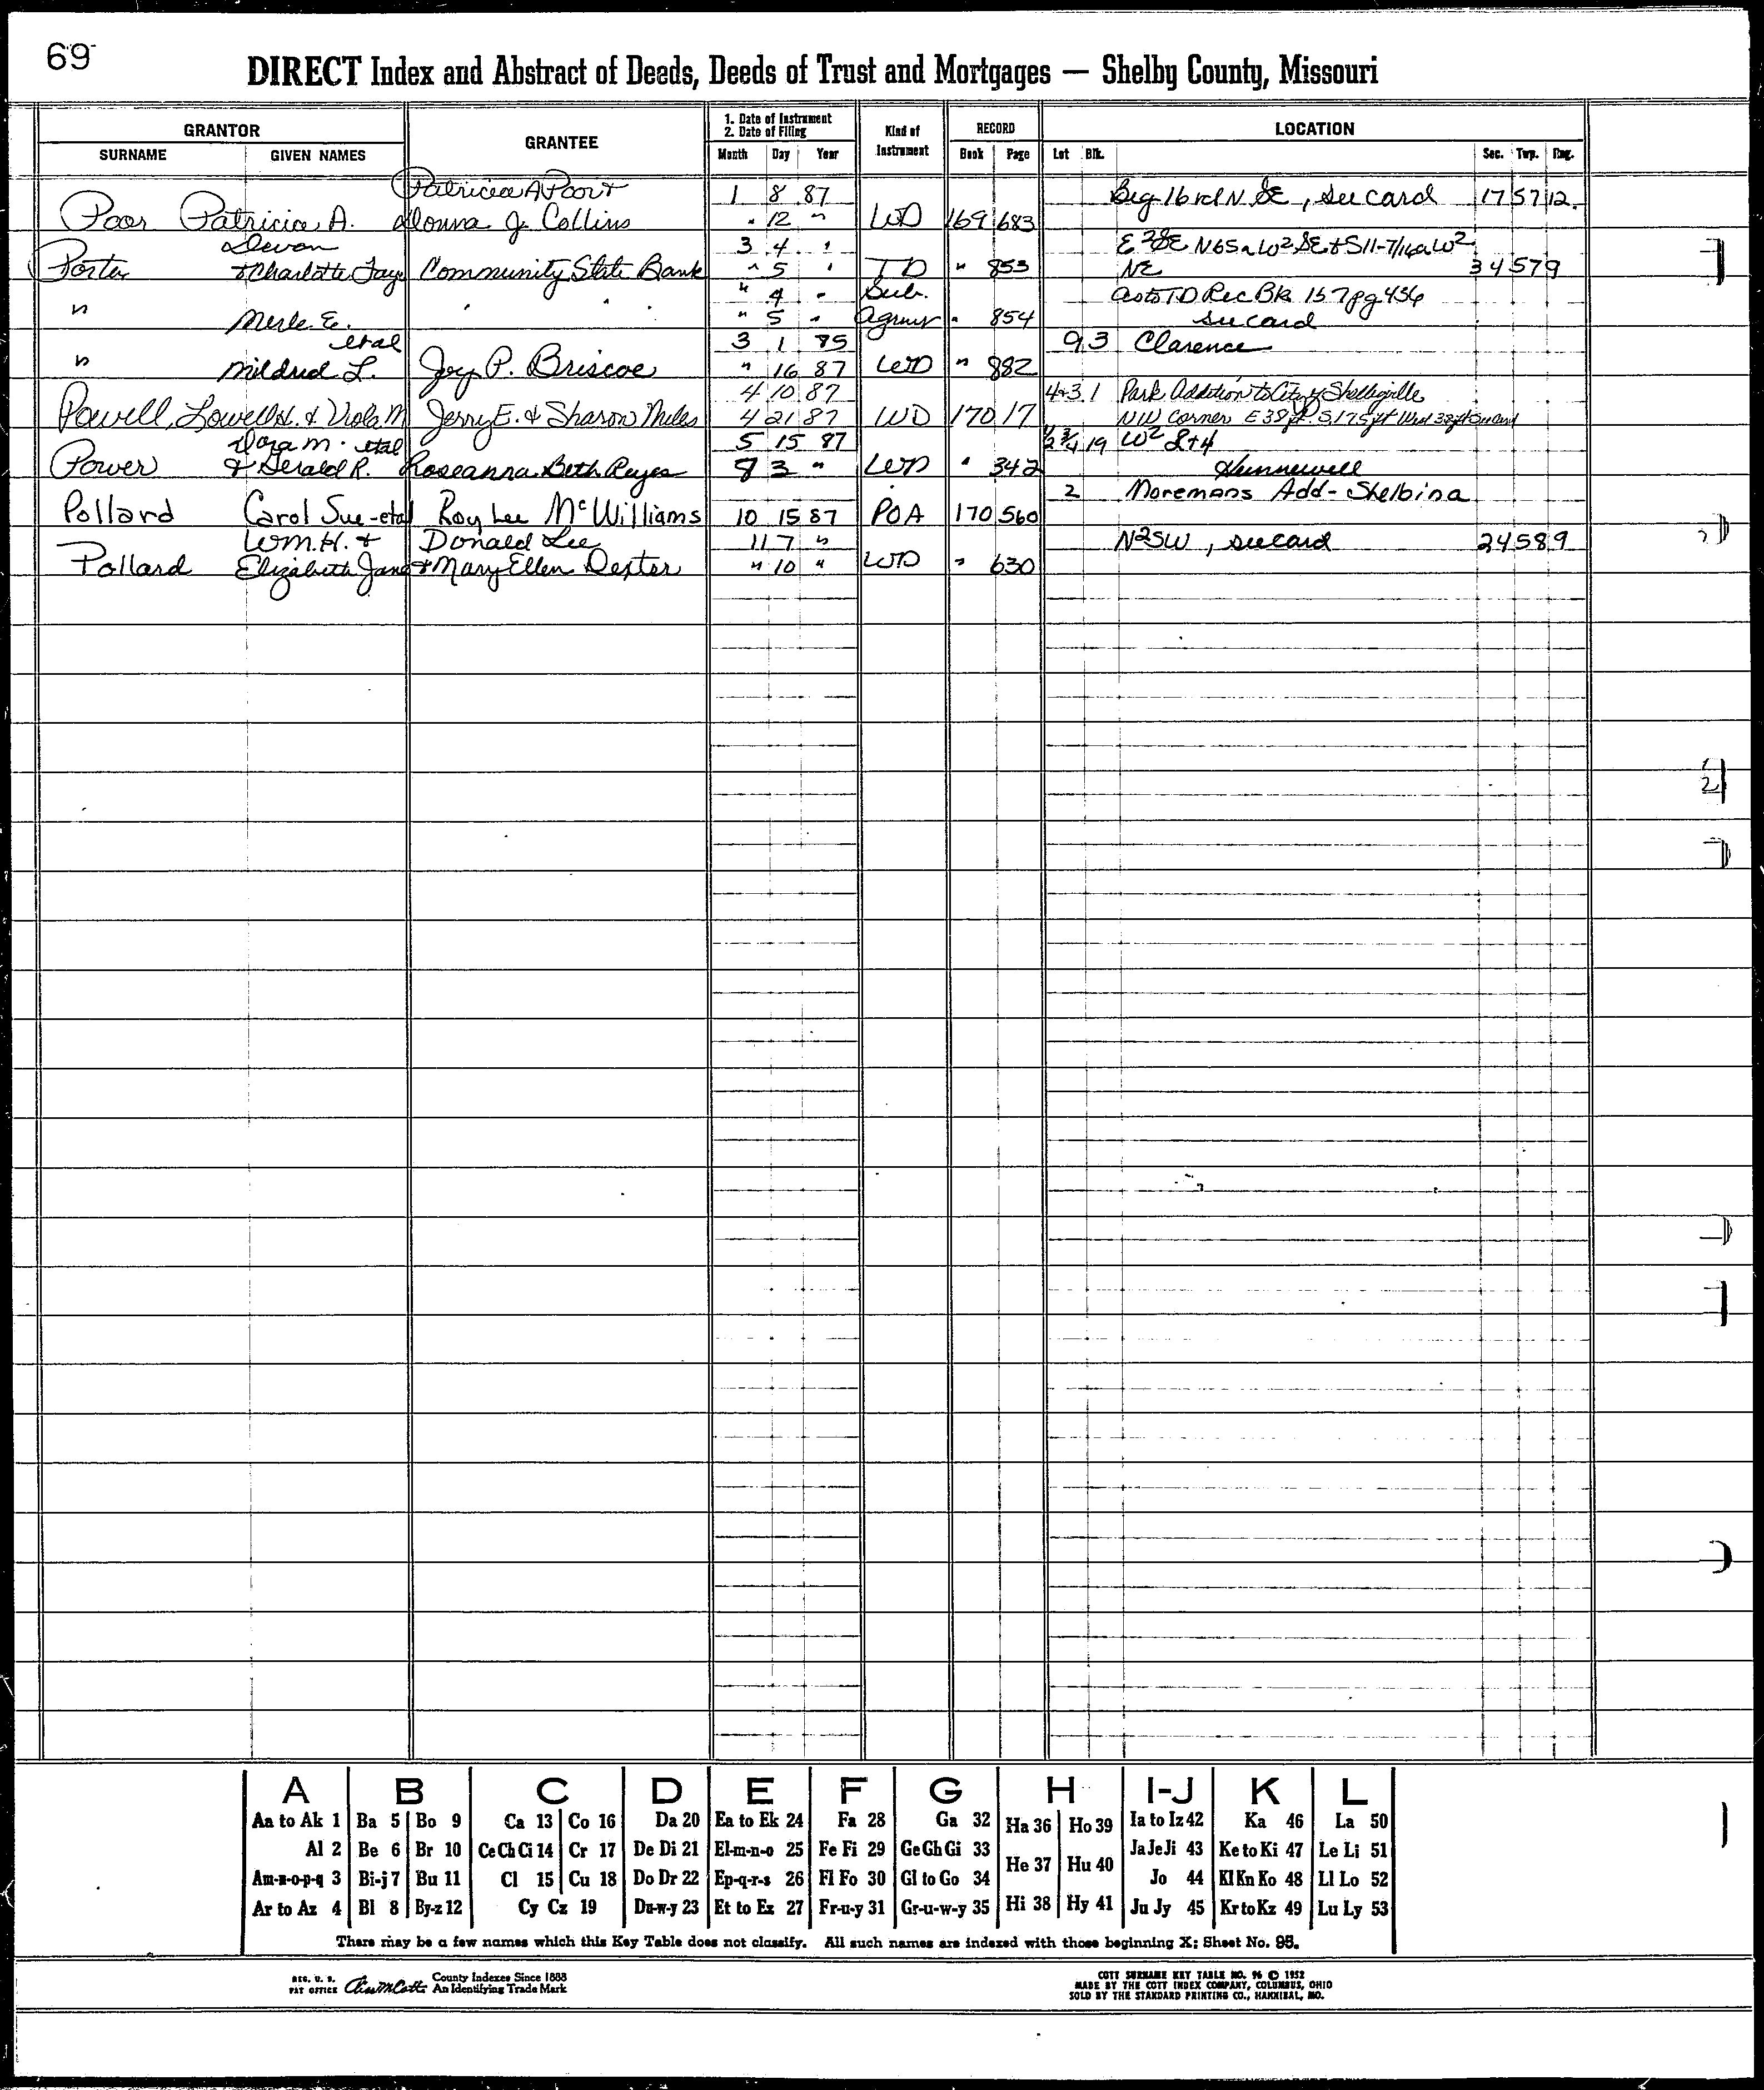 69
DIRECT Index and Abstract of Deeds, Deeds of Trust and Mortgages — Shelby County, Missouri
GRANTOR GRANTEE 1. Date of Instrument 2. Date of Filing Kind of Instrument RECORD LOCATION
SURNAME GIVEN NAMES Month Day Year Book Page Lot Blk. Sec. Twp. Rng.
Patricia A Poor & 1 8 87 Beg 16 rd N SE, see card 17 57 12
Poor Patricia A. Donna J. Collins " 12 " WD 169 683
Devon 3 4 " E2SE N65a W2SE & S11-7/16a W2
Porter & Charlotte Faye Community State Bank " 5 " TD " 853 NE 34 57 9
" 4 " Sub. as to TD Rec Bk 157 pg 436
" Merle E. " " " " 5 " Agrmt " 854 see card
etal 3 1 85 9 3 Clarence
" Mildred L. Joy P. Briscoe " 16 87 WD " 882
4 10 87 4+3 1 Park Addition to City Shelbyville
Powell, Lowell H. & Viola M Jerry E. & Sharon Miles 4 21 87 WD 170 17 NW Corner E 38 ft S 175 ft West 38 ft See card
Dora M. etal 5 15 87 19 W2 2+4
Power & Gerald R. Roseanna Beth Reyes 8 3 " WD " 342 Hunnewell
2 Moremans Add- Shelbina
Pollard Carol Sue-etal Roy Lee McWilliams 10 15 87 POA 170 560
Wm. H. & Donald Lee 11 7 " N2SW, see card 24 58 9
Pollard Elizabeth Jane & Mary Ellen Dexter " 10 " WD " 630
A B C D E F G H I-J K L
Aa to Ak 1 Ba 5 Bo 9 Ca 13 Co 16 Da 20 Ea to Ek 24 Fa 28 Ga 32 Ha 36 Ho 39 Ia to Iz 42 Ka 46 La 50
Al 2 Be 6 Br 10 Ce Ch Ci 14 Cr 17 De Di 21 El-m-n-o 25 Fe Fi 29 Ge Gh Gi 33 He 37 Hu 40 Ja Je Ji 43 Ke to Ki 47 Le Li 51
Am-n-o-p-q 3 Bi-j 7 Bu 11 Cl 15 Cu 18 Do Dr 22 Ep-q-r-s 26 Fl Fo 30 Gl to Go 34 Jo 44 Kl Kn Ko 48 Ll Lo 52
Ar to Az 4 Bl 8 By-z 12 Cy Cz 19 Du-w-y 23 Et to Ez 27 Fr-u-y 31 Gr-u-w-y 35 Hi 38 Hy 41 Ju Jy 45 Kr to Kz 49 Lu Ly 53
There may be a few names which this Key Table does not classify. All such names are indexed with those beginning X; Sheet No. 95.
REG. U. S. PAT OFFICE County Indexes Since 1888 An Identifying Trade Mark
COTT SURNAME KEY TABLE NO. 96 © 1952
MADE BY THE COTT INDEX COMPANY, COLUMBUS, OHIO
SOLD BY THE STANDARD PRINTING CO., HANNIBAL, MO.